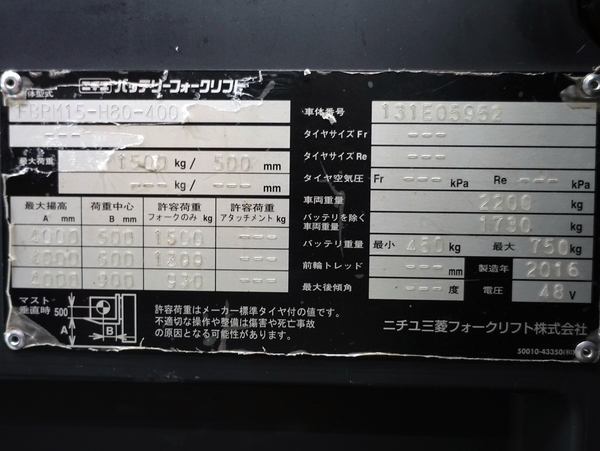 ニチユ バッテリーフォークリフト
体型式
FBRM15-H80-400
---
最大荷重 1500 kg/ 500 mm
--- kg/ --- mm
最大揚高 A mm 荷重中心 B mm 許容荷重 フォークのみ kg 許容荷重 アタッチメント kg
4000 500 1500 ---
4000 600 ---
4000 900 930 ---
マスト垂直時 500 A B
許容荷重はメーカー標準タイヤ付の値です。
不適切な操作や整備は傷害や死亡事故
の原因となる可能性があります。
車体番号 131E05952
タイヤサイズ Fr ---
タイヤサイズ Re ---
タイヤ空気圧 Fr --- kPa Re --- kPa
車両重量 2200 kg
バッテリを除く車両重量 1730 kg
バッテリ重量 最小 460 kg 最大 750 kg
前輪トレッド --- mm 製造年 2016
最大後傾角 --- 度 電圧 48 V
ニチユ三菱フォークリフト株式会社
50010-43350